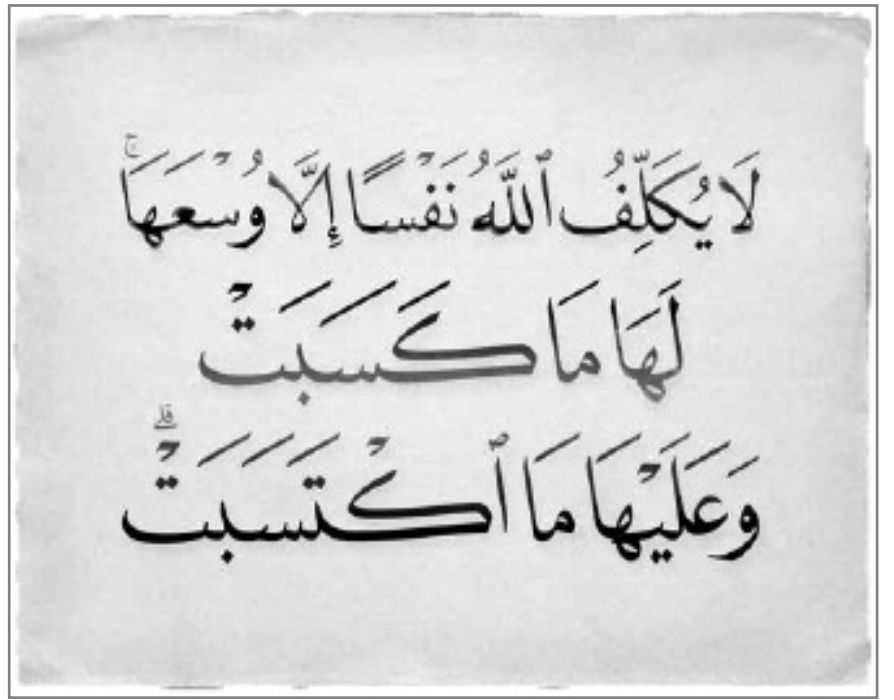 لَا يُكَلِّفُ ٱللَّهُ نَفْسًا إِلَّا وُسْعَهَا ۚ
لَهَا مَا كَسَبَتْ
وَعَلَيْهَا مَا ٱكْتَسَبَتْ ۗ